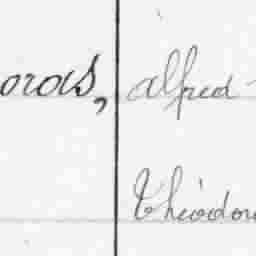 oras, alfred-
Théodor